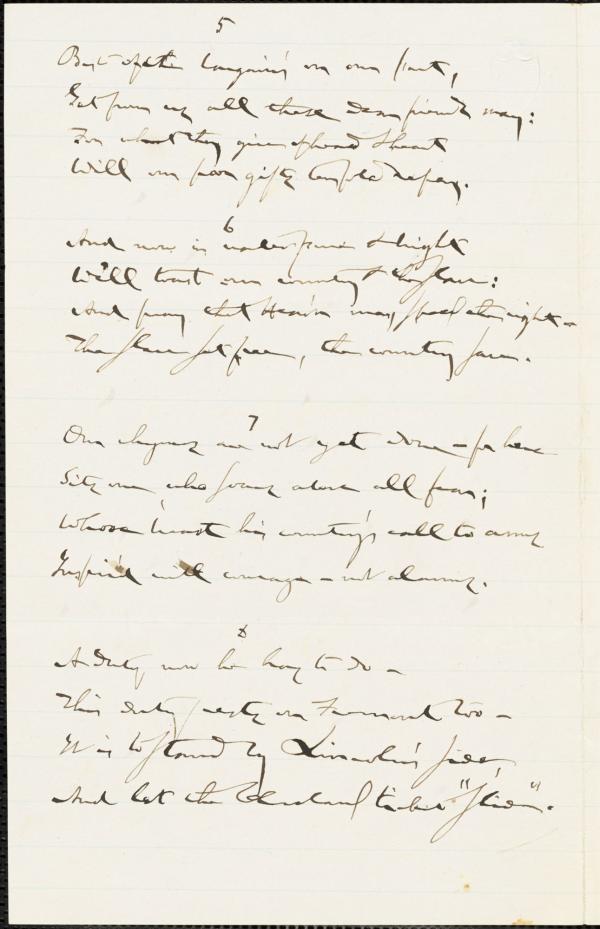 5
But of the longing's on our part,
Got from us all these dear friends may:
For what they give of hand & heart
Will our poor gifts tenfold repay.
6
And now in under & bright
We'll trust our country & the slave:
And pray that Heav'n may speed the right –
The slave set free, the country save.
7
Our rhymes are not yet done – for here
Sits one who soars above all fear;
Whose heart his country's call to arms
Inspir'd with courage – not alarms.
8
A duty now he has to do –
This duty rests on Fremont too –
It is to stand by Lincoln's side,
And let the Cleveland ticket "slide".